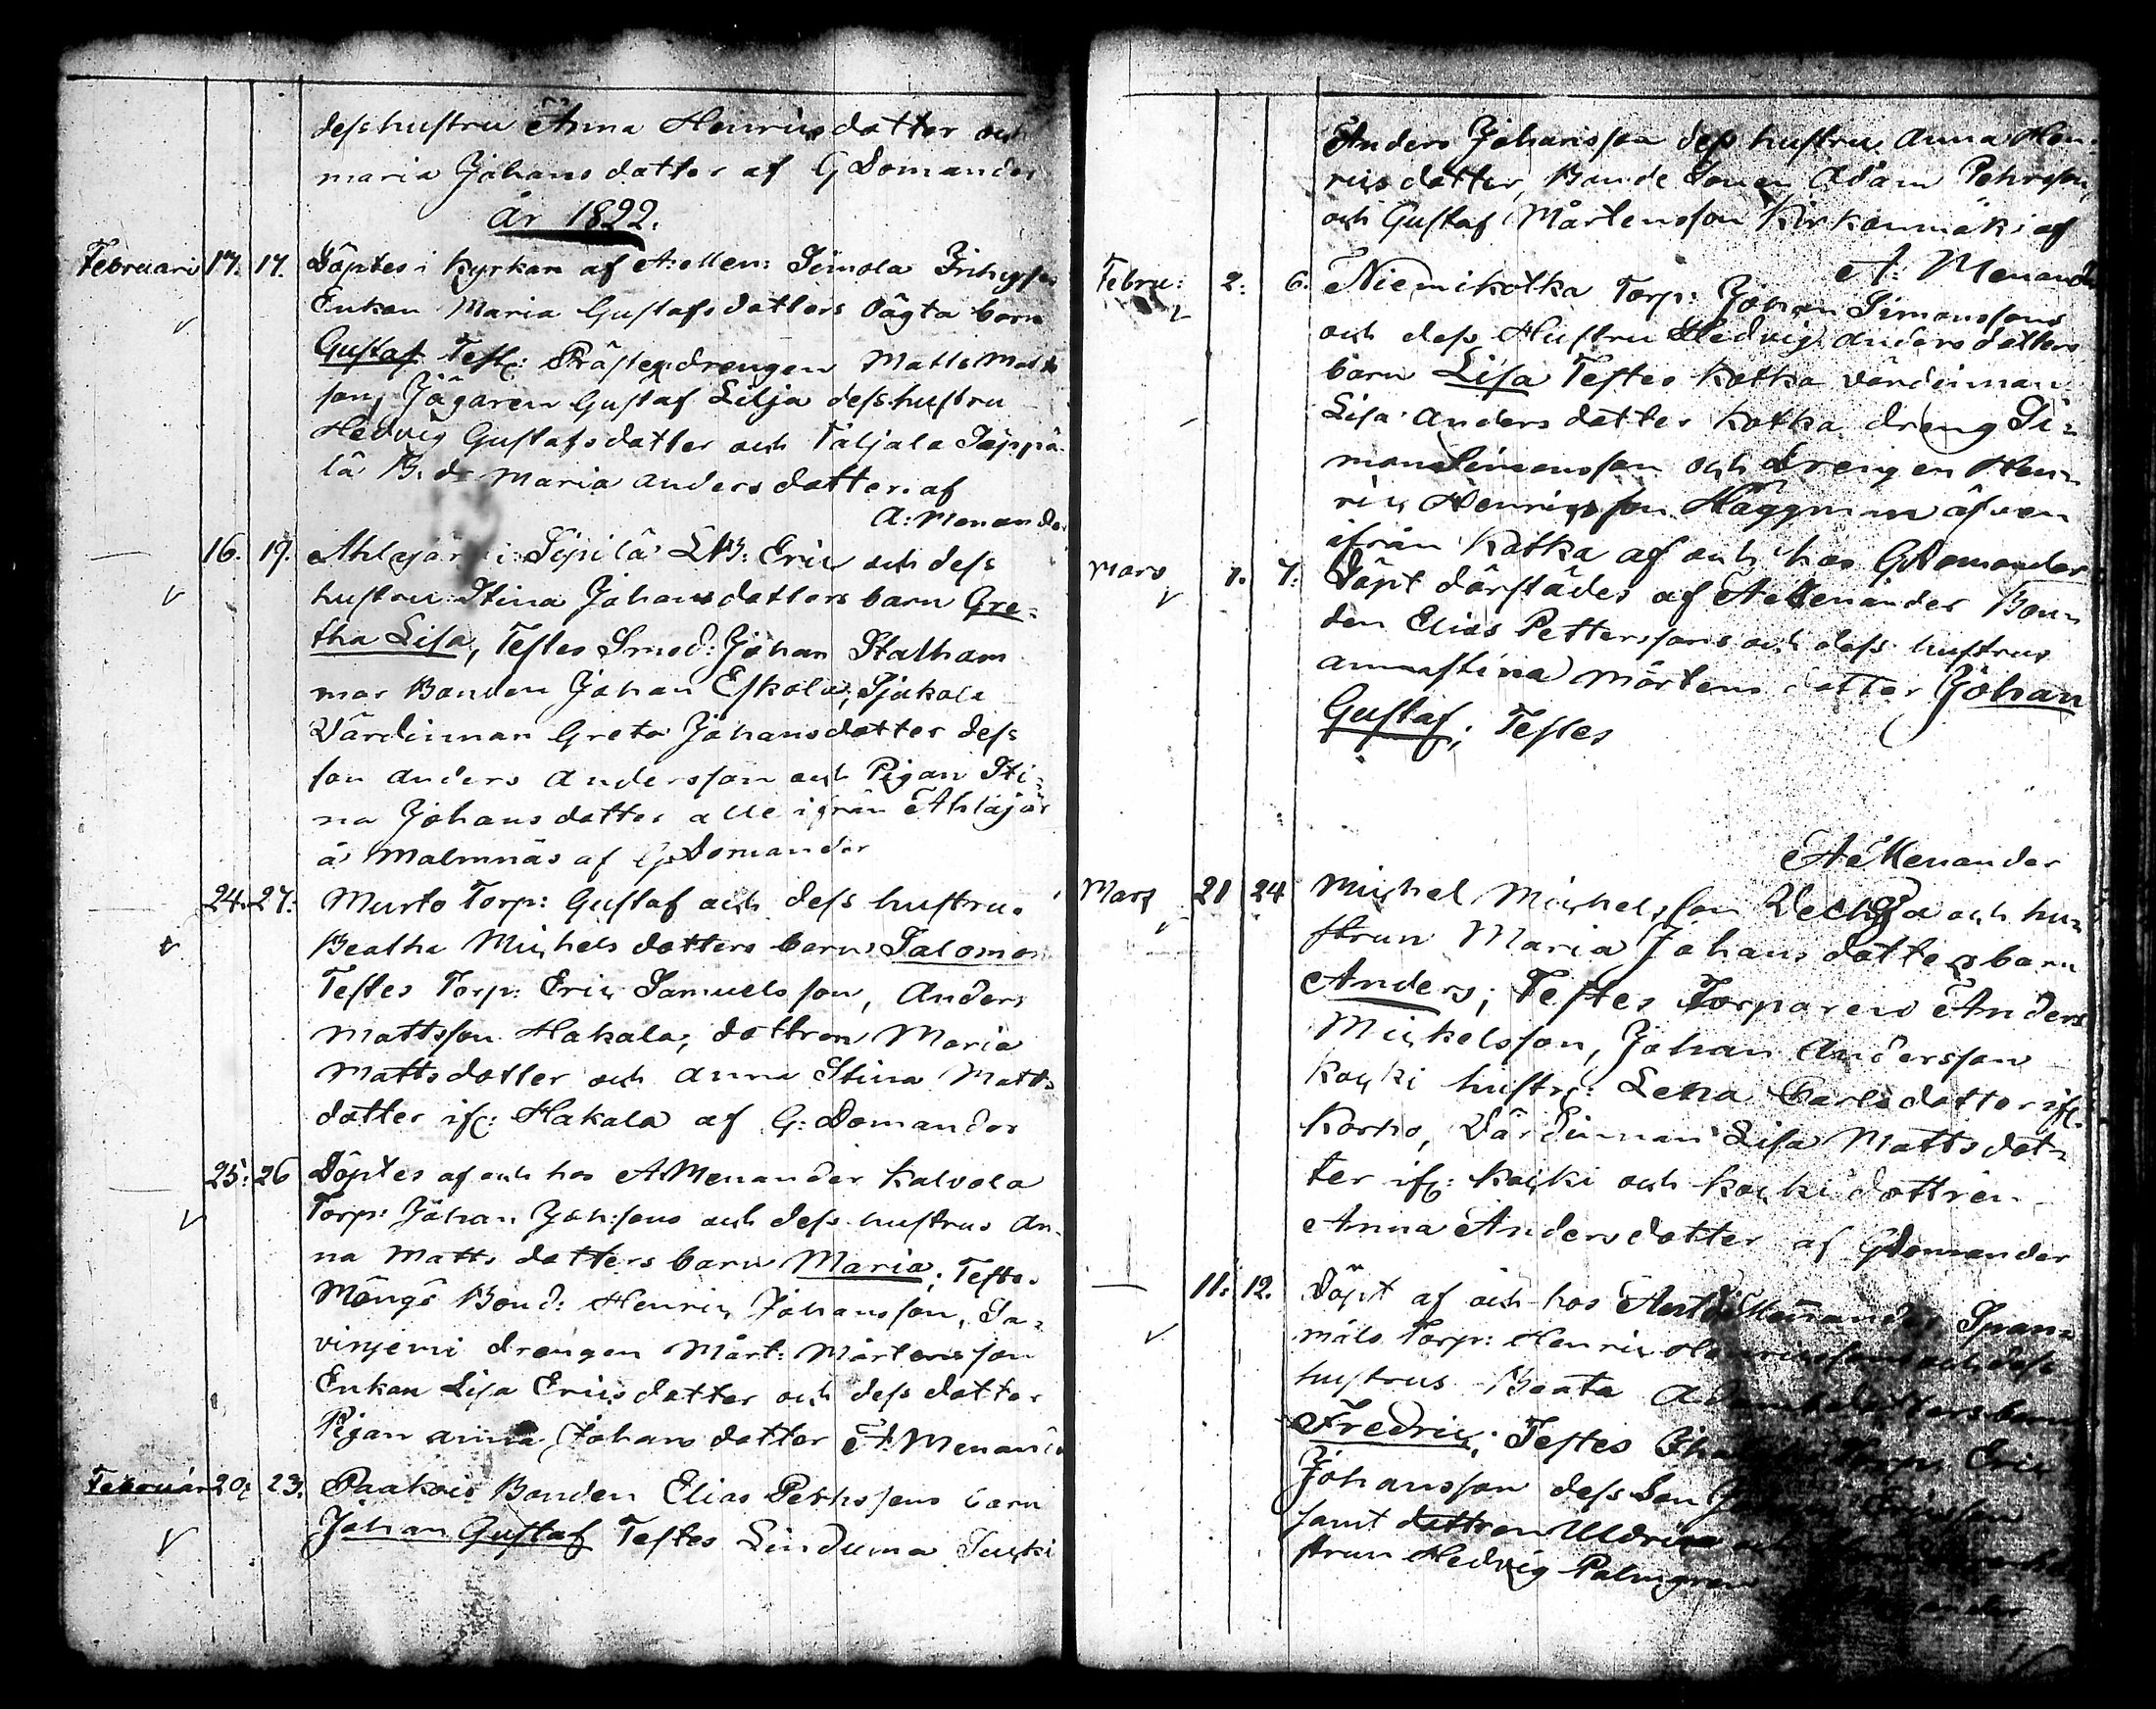 dess hustru Anna Henricsdotter och
maria Johansdotter af G Domander
år 1822.
Februari 17. 17. Döptes i Kyrkan af A: Men: Simola Inhyses
Enkan Maria Gustafsdotters oägta barn
Gustaf Test: Prästegdrengen Matts Matts
son, Jägaren Gustaf Lilja dess hustru
Hedvig Gustafsdotter och Täljala Seppä-
lä B. dr Maria Andersdotter. af
A: Menander
16. 19. Ahlajärvi Sepilä LB: Eric och dess
hustru Stina Johansdotters barn Gre-
tha Lisa, Testes Smed: Johan Stalham
mar Bonden Johan Eskola, Sjökala
Värdinnan Greta Johansdotter dess
son Anders Andersson och Pigan Sti-
na Johansdotter alle ifrån Ahlajär
å Malmnäs af G Domander
24. 27. Murto Torp: Gustaf och dess hustrus
Beatha Michelsdotters barn Salomon
Testes Torp: Eric Samuelsson, Anders
Mattsson Hakala, dottren Maria
Mattsdotter och Anna Stina Matts
dotter if: Hakala af G: Domander
25. 26 Döptes af och hos A Menander Kalvola
Torp: Johan Johssons och dess hustrus An-
na Mattsdotters barn Maria; Testes
Bond: Henric Johansson, Sa-
vinjemi drengen Mårt: Mårtensson
Enkan Lisa Ericsdotter och dess dotter
Pigan Anna Johansdotter A Menand
Februari 20. 23. Paakois Bonden Elias Pehrssons barn
Johan Gustaf Testes Linduma Sucki
Anders Johansson dess hustru Anna Hen-
ricsdotter, Bonde Sonen Adam Pehrsson,
och Gustaf Mårtensson Kirkonmäki af
A: Menander
Febru: 2. 6. Niemikotka Torp: Johan Simonssons
och dess Hustru Hedvig Andersdotters
barn Lisa Testes Kotka värdinnan
Lisa Andersdotter Kotka dreng Si-
mon Simonsson och Drengen Hen-
ric Henricsson Häggman äfven
ifrån Kotka af och hos G Domander
Mars 1. 7. Döpt därstädes af A Menander Bon-
den Elias Petterssons och dess hustrus
anna stina Mårtensdotter Johan
Gustaf; Testes
A Menander
Mars 21 24 Michel Michelsson och hu-
strun Maria Johansdotters barn
Anders; Testes Torparen Anders
Mickelsson, Johan Andersson
Kocki hustr: Lena Carlsdotter if:
Korho, Värdinnan Lisa Mattsdot-
ter if: Kocki och Kocki dottren
Anna Andersdotter af G Domander
11. 12. Döpt af och hos Menander Span-
mäls Torp: Henric Henricssons och dess
hustrus Beata Adamsdotters barn
Fredric; Testes Torp: Eric
Johansson dess Son Johan Ericsson
samt dottren Uldrica och
strun Hedvig Palmgren
Menander